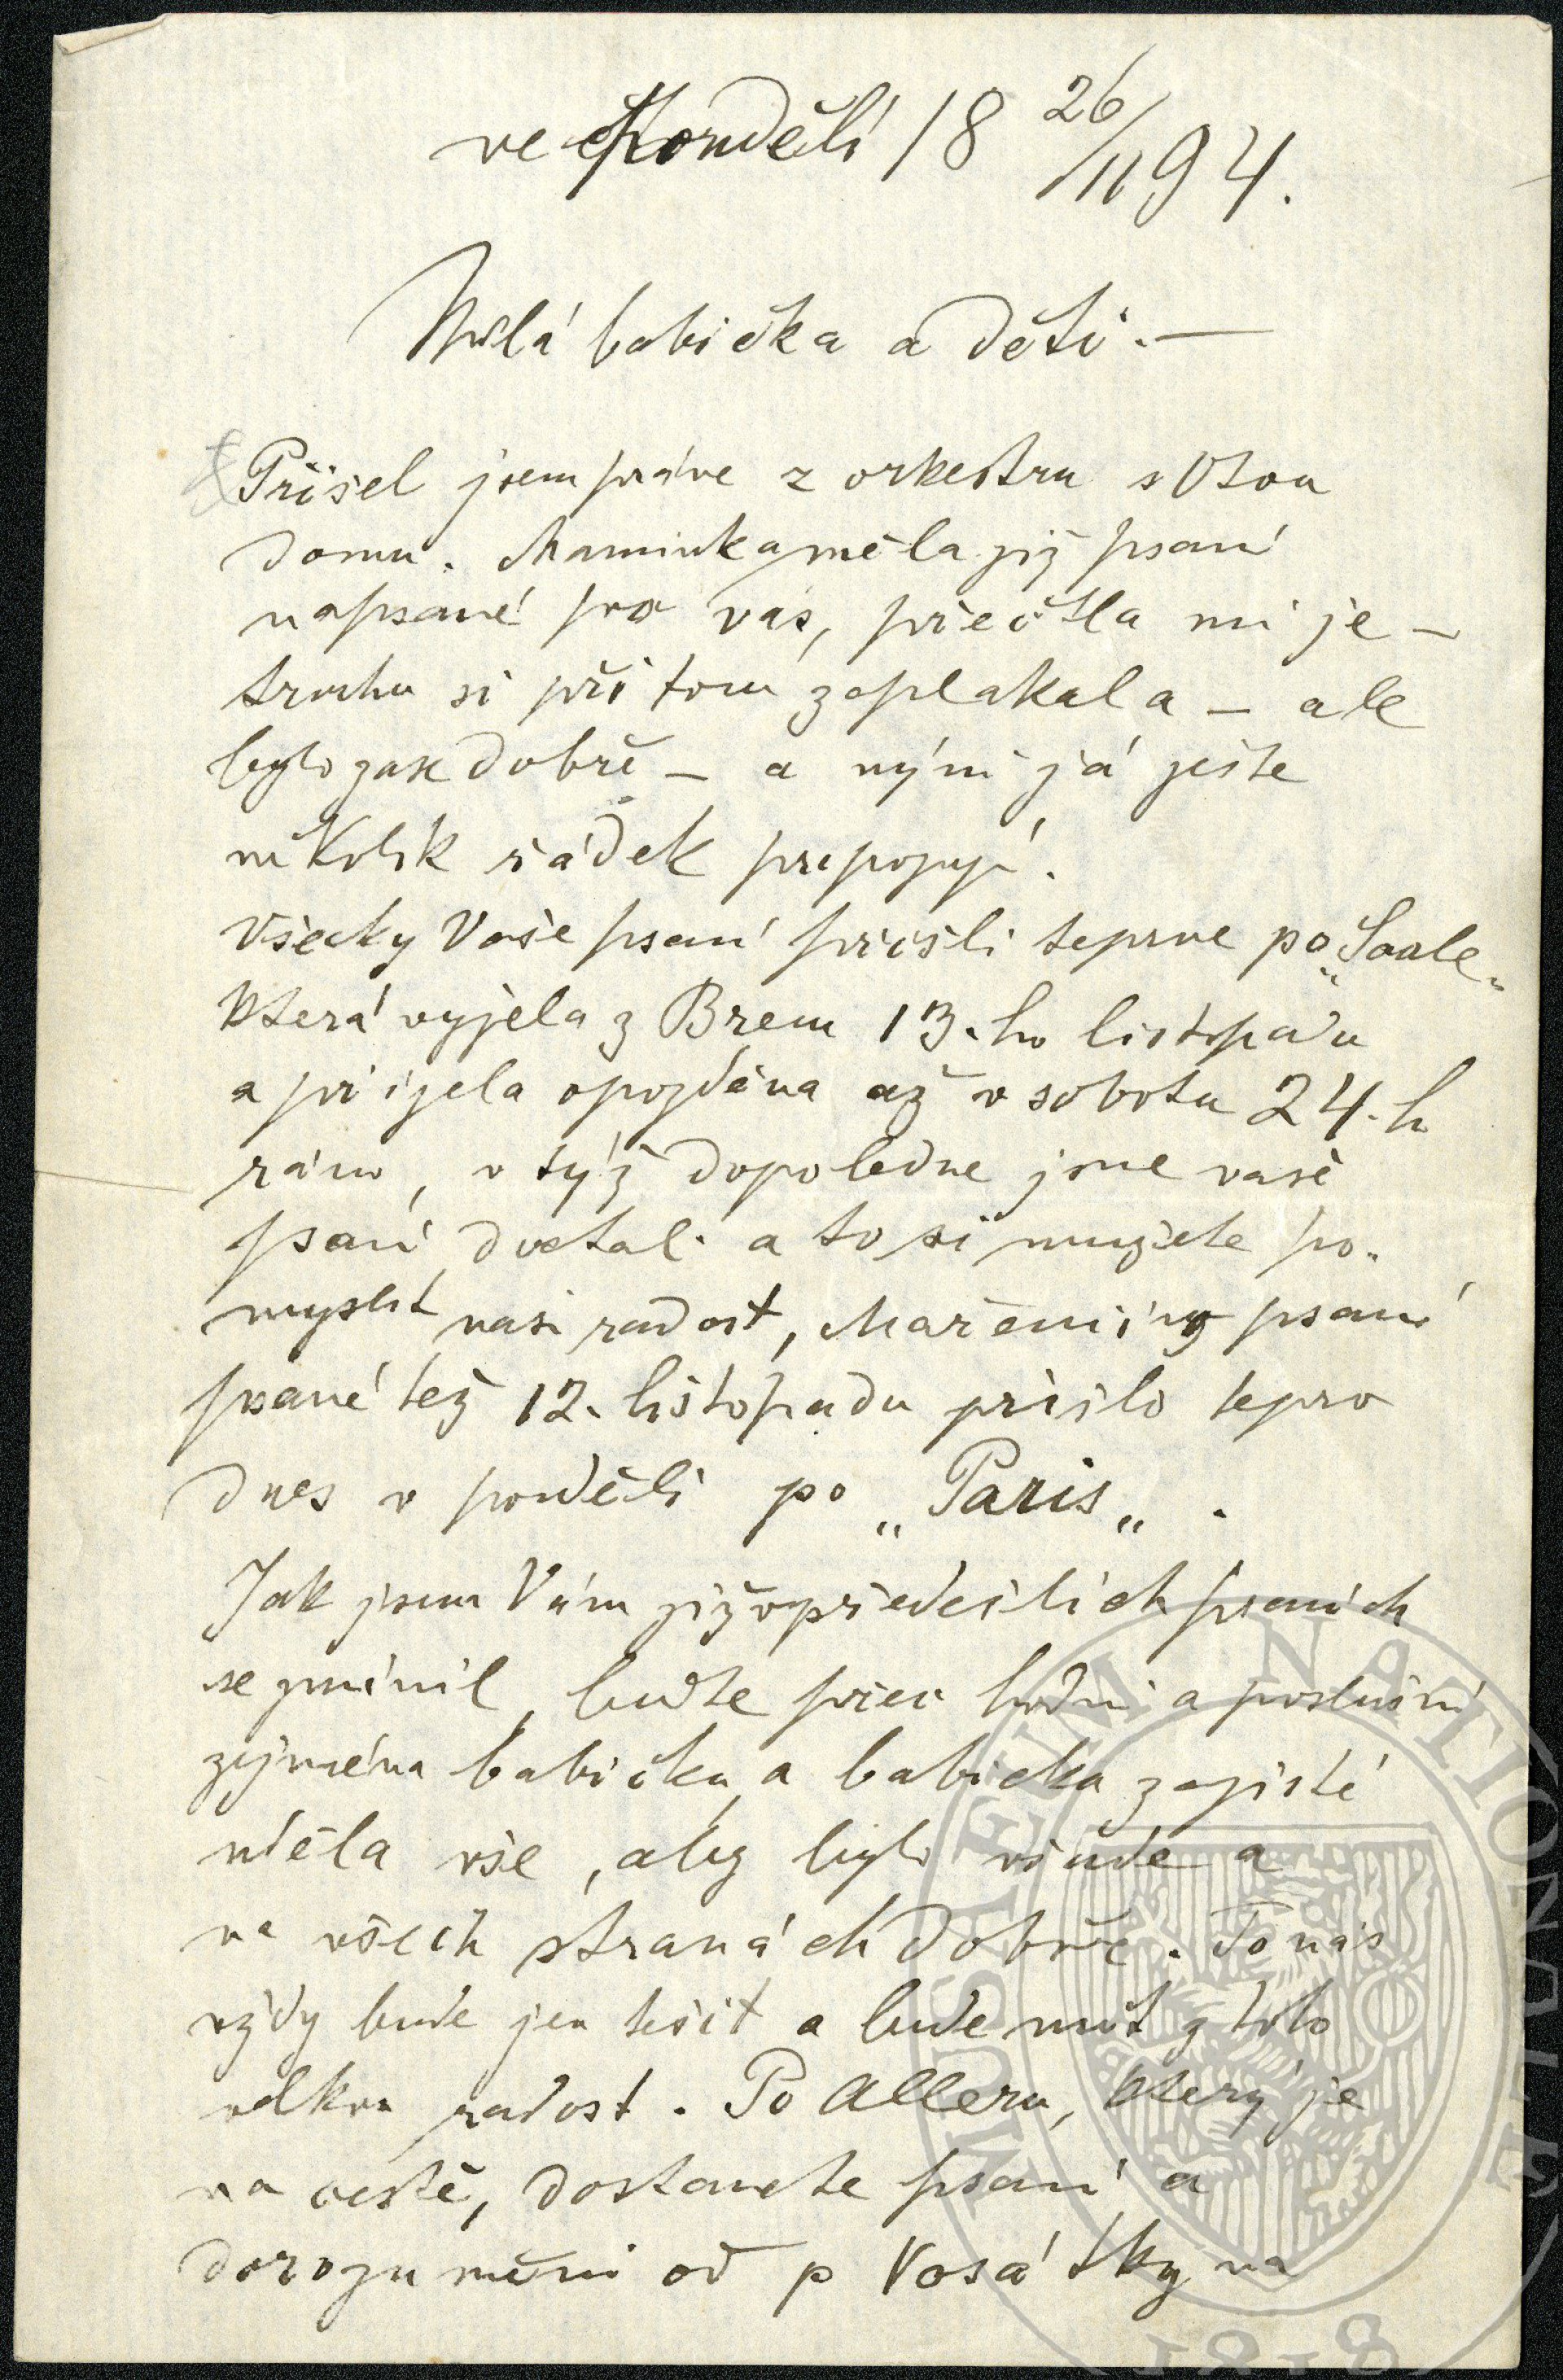 ve Pondělí 18 26/11 94.
Milá babička a děti. —
Přišel jsem práve z orkestru s Otou
domu. Maminka měla již psaní
napsané pro vás, přečtla mi je —
trochu si při tom zaplakala — ale
bylo zase dobře — a nýni já ješte
několik řádek pripojuji.
Všecky Vaše psaní prišli teprve po „Saale„
která vyjela z Brem 13.ho listopadu
a prijela opozděna až v sobotu 24.h
ráno, v týž dopoledne jsme vaše
psaní dostali a to si mužete po-
myslit naši radost, Mařenin psaní
psané též 12. listopadu prišlo teprv
dnes v pondělí po „Paris„ .
Jak jsem Vám již v předešlích psaních
se zmínil, buďte přec hodni a poslušní
zejména babičku, a babička zajisté
uděla vše, aby bylo všude a
na všech stranách dobře. To nás
vždy bude jen těšit a bude mít z toho
velkou radost. Po Alleru, který je
na cestě, dostanete psaní a
dorozumění od p Vosátky na
MUSEUM NATIONALE
1818